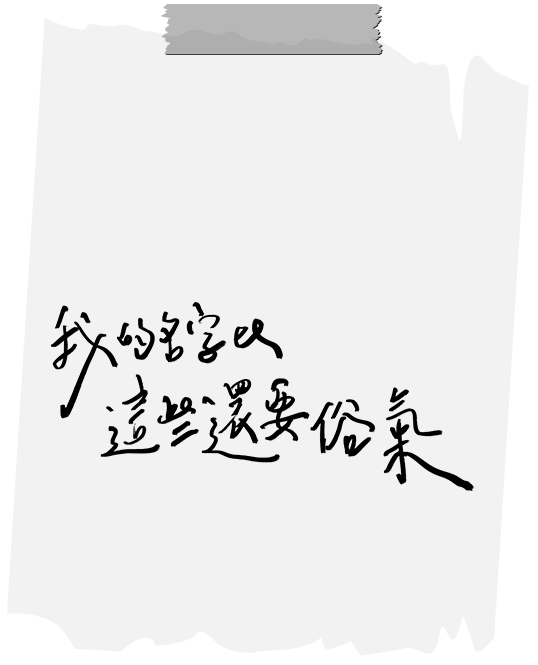 我的名字比
這些還要俗氣